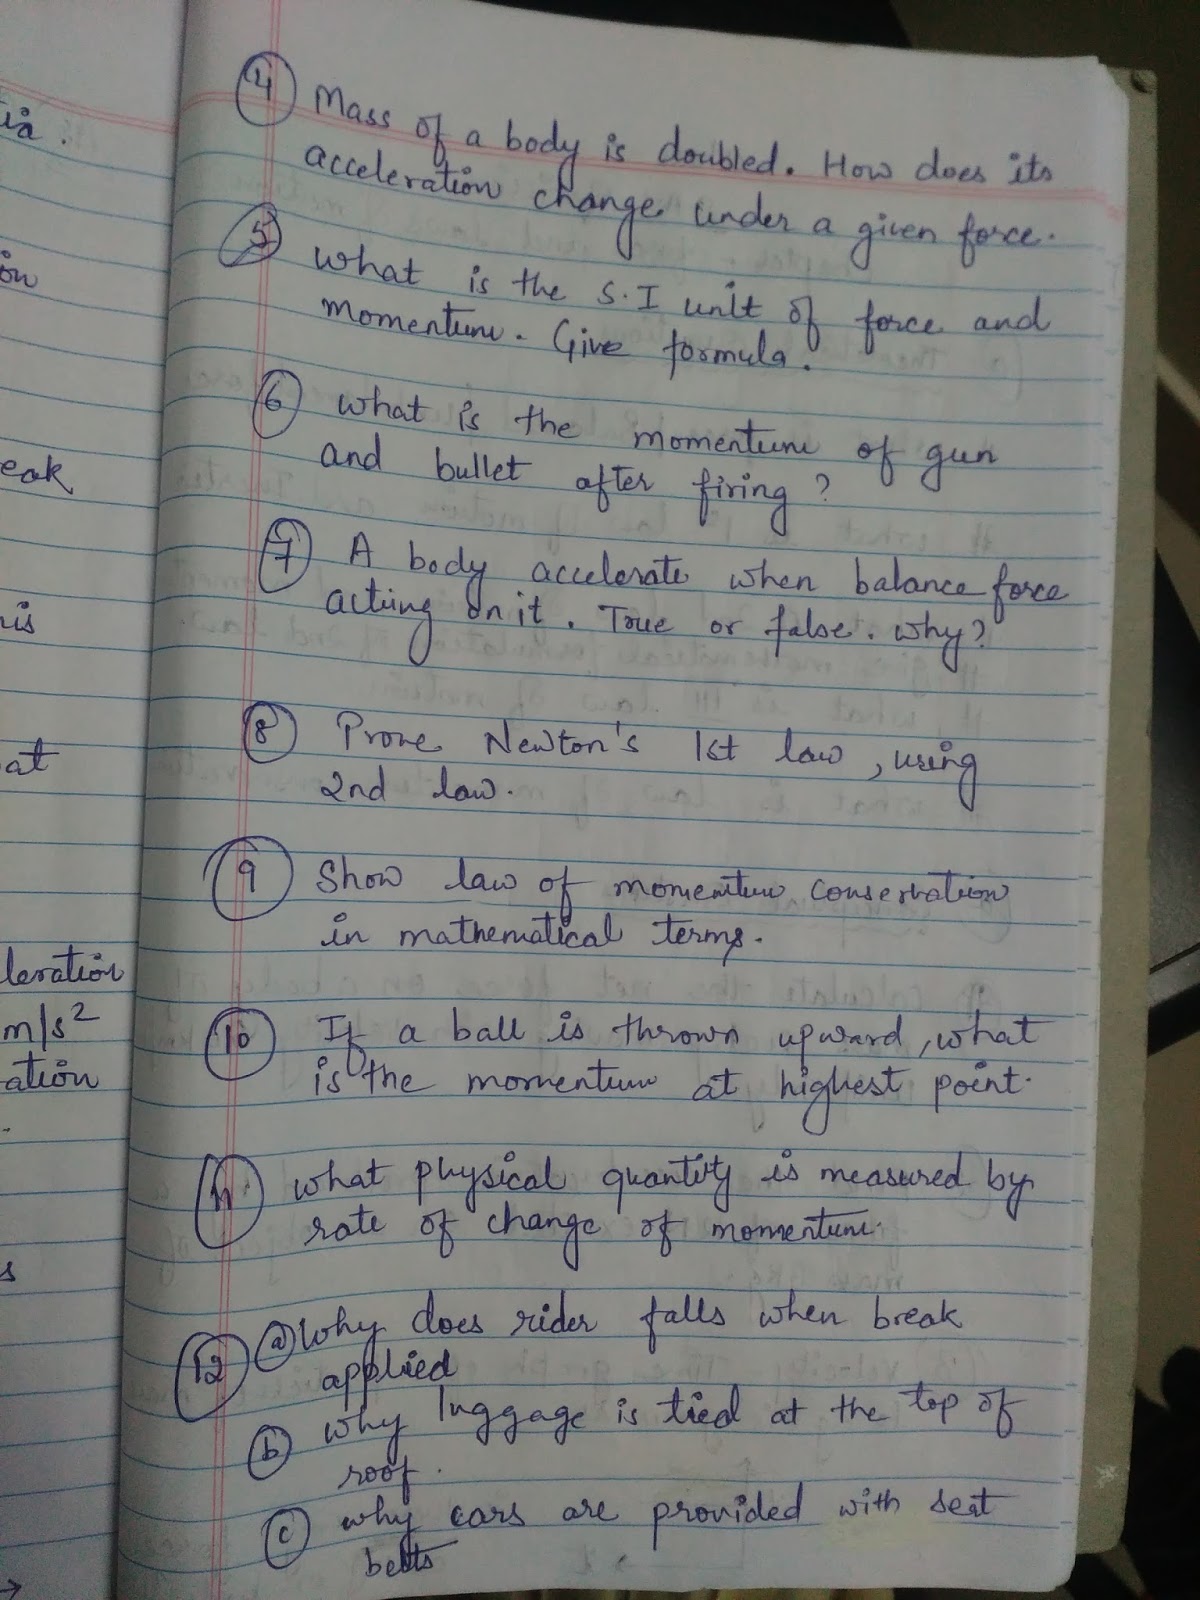 tia.
on
eak
is
at
leration
m/s²
ation
s
④ Mass of a body is doubled. How does its
acceleration change under a given force.
⑤ What is the S.I unit of force and
momentum. Give formula.
⑥ what is the momentum of gun
and bullet after firing?
⑦ A body accelerate when balance force
acting on it. True or false. why?
⑧ Prove Newton's 1st law, using
2nd law.
⑨ Show law of momentum conservation
in mathematical terms.
⑩ If a ball is thrown upward, what
is the momentum at highest point.
⑪ what physical quantity is measured by
rate of change of momentum.
⑫ ⓐ Why does rider falls when break
applied
ⓑ why luggage is tied at the top of
roof.
ⓒ why cars are provided with seat
belts